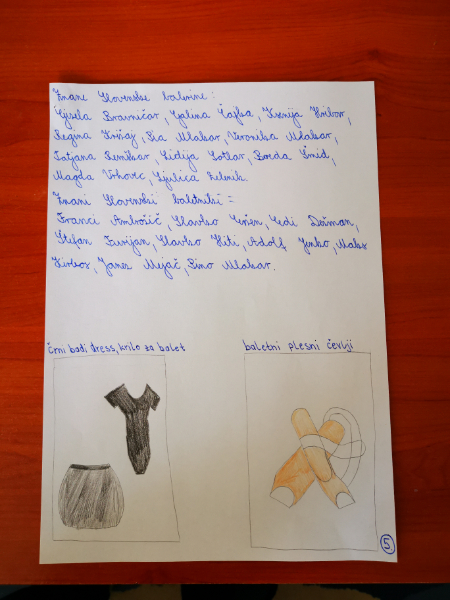 Znane Slovenske balerine:
Gizela Bravničar, Galina Čajka, Ksenija Hribar,
Regina Križaj, Pia Mlakar, Veronika Mlakar,
Tatjana Remškar, Lidija Sotlar, Breda Šmid,
Magda Vrhovec, Ljulica Zelenik.
Znani Slovenski baletniki =
Franci Ambrožič, Slavko Eržen, Gedi Dežman,
Štefan Furijan, Slavko Hiti, Adolf Jenko, Maks
Kirbos, Janez Mejač, Pino Mlakar.
črni badi dress, krilo za balet
baletni plesni čevlji
5